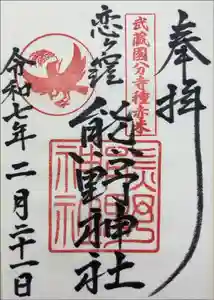 奉拝
武蔵國分寺種赤米
恋ヶ窪
熊野神社
熊野神社
令和七年 二月二十一日